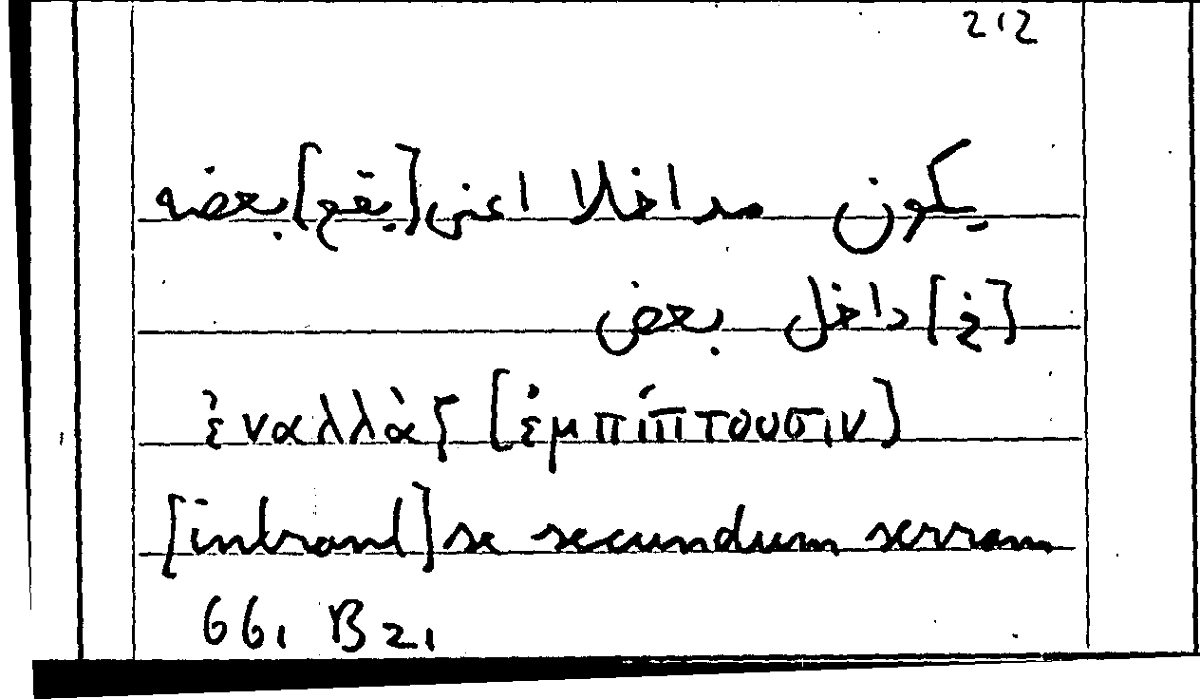 212
يكون مداخلا اعنى [يقع] بعضه
[في] داخل بعض
ἐναλλὰξ [ἐμπίπτουσιν]
[intrant] se secundum serram
661 B21